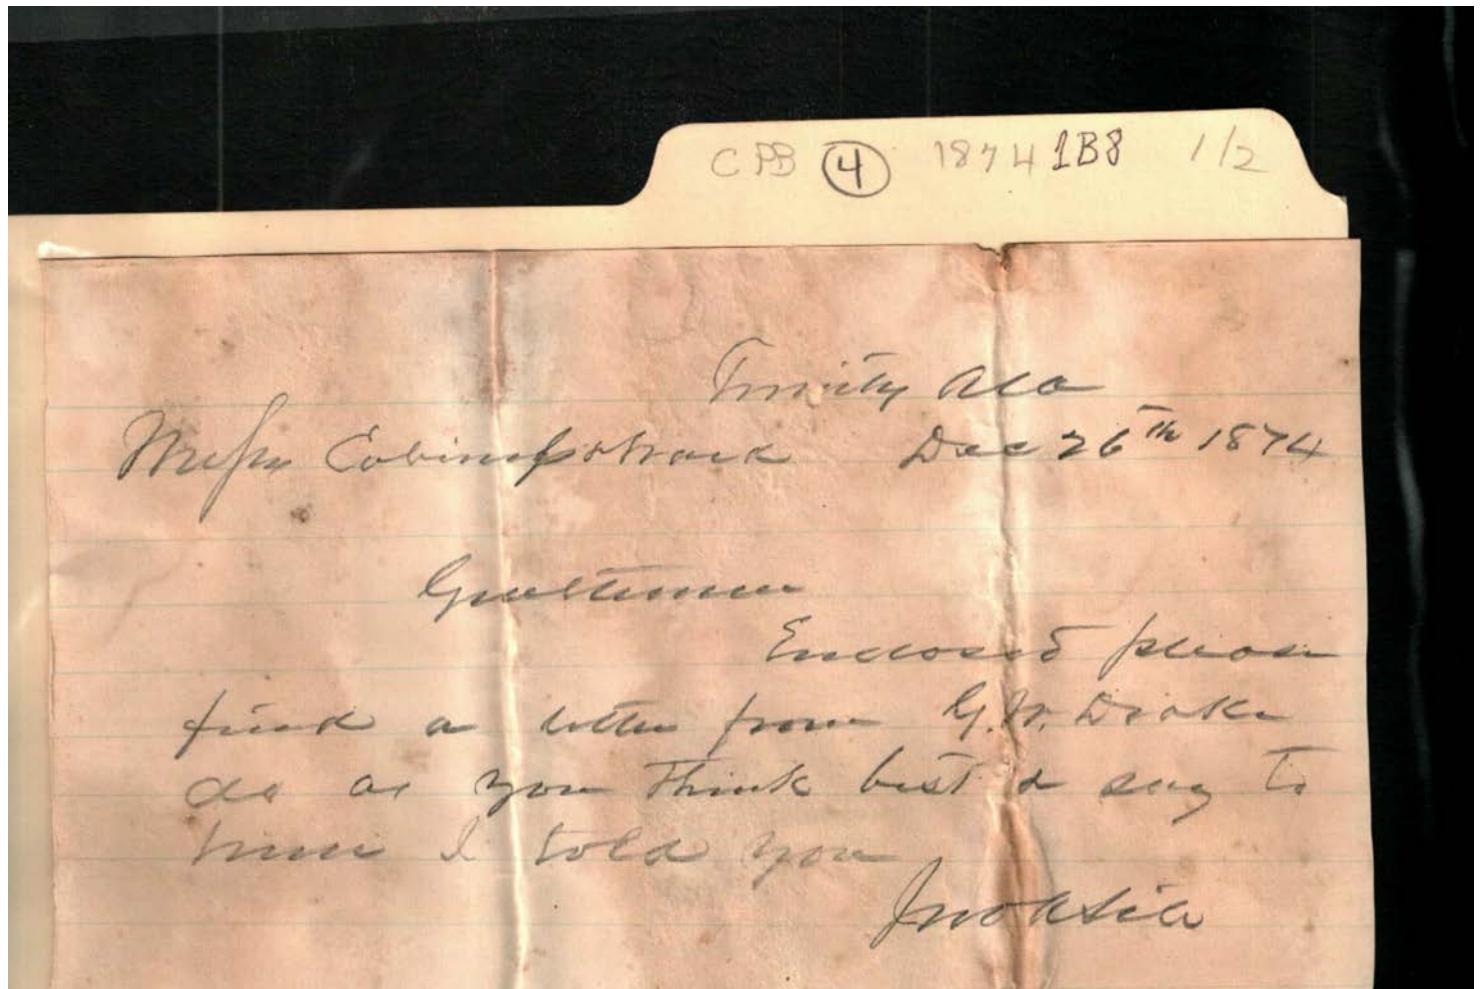 CPB 4 1874 1B8 1/2
Trinity Ala
Dec 26th 1874
Gentlemen
Enclosed please
find a letter from G. W. Drake
do as you think best & say to
him I told you